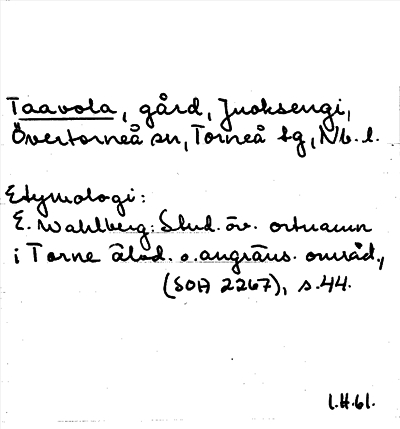 Taavola, gård, Juoksengi,
Övertorneå sn, Torneå tg, Nb. l.
Etymologi:
E. Wahlberg: Stud. öv. ortnamn
i Torne älvd. o. angräns. områd.,
(SOA 2267), s. 44.
l.H.61.